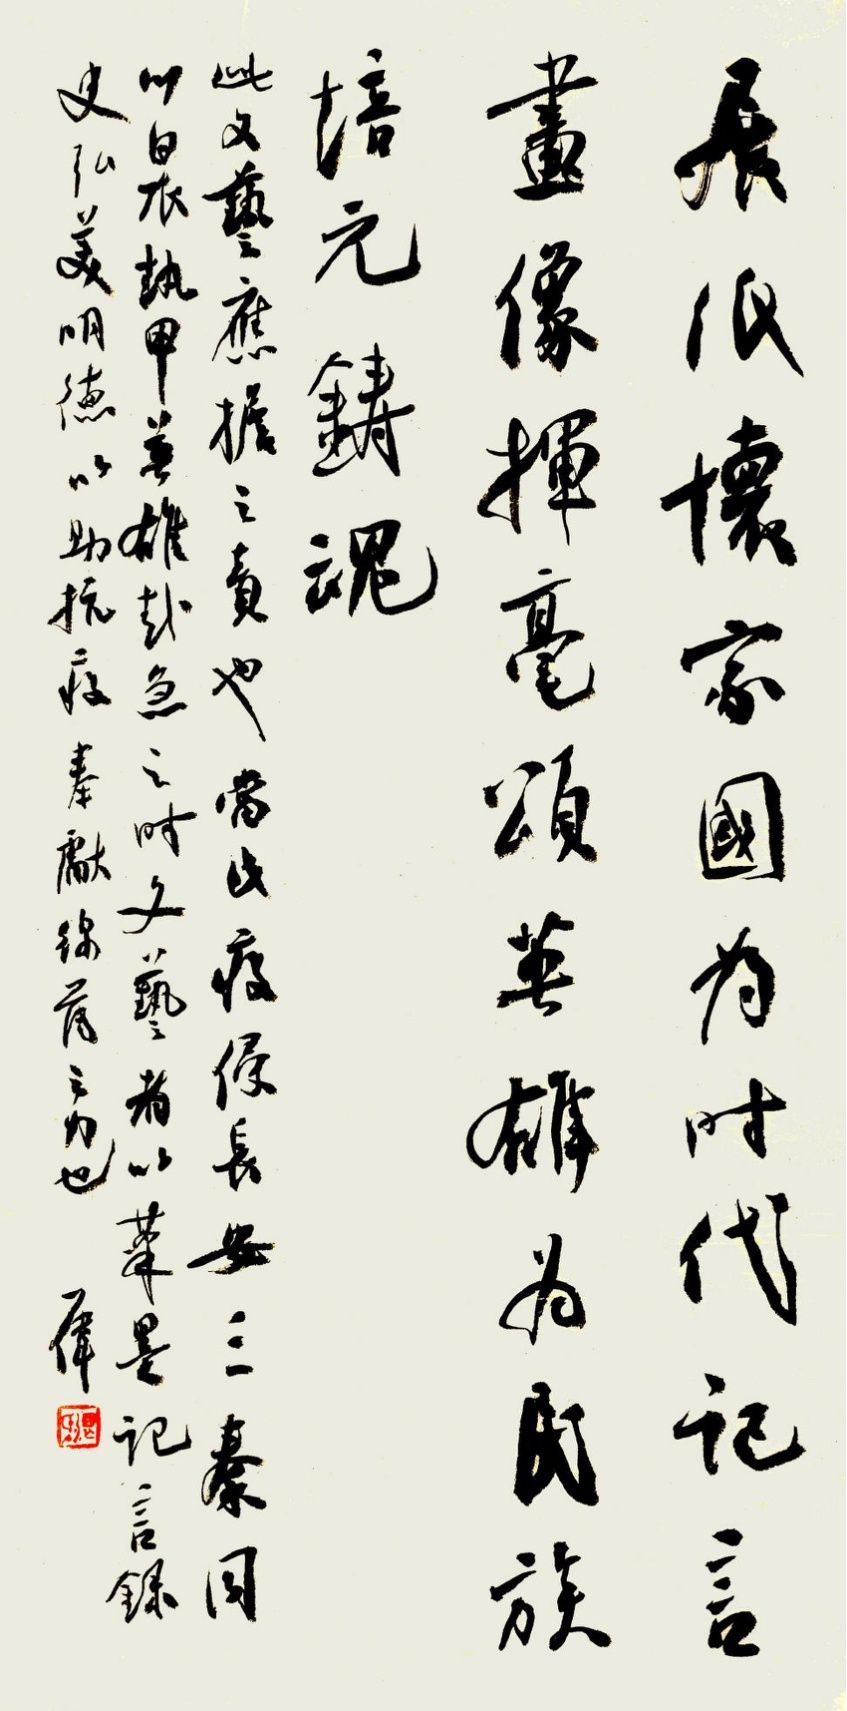 展纸懷家國为时代记言
畫像揮毫頌英雄为民族
培元鑄魂
此文藝應擔之責也當此疫侵長安三秦同
心白衣執甲英雄赴急之时文藝者以筆墨记言録
史弘美明德以助抗疫奉獻綿薄之力也